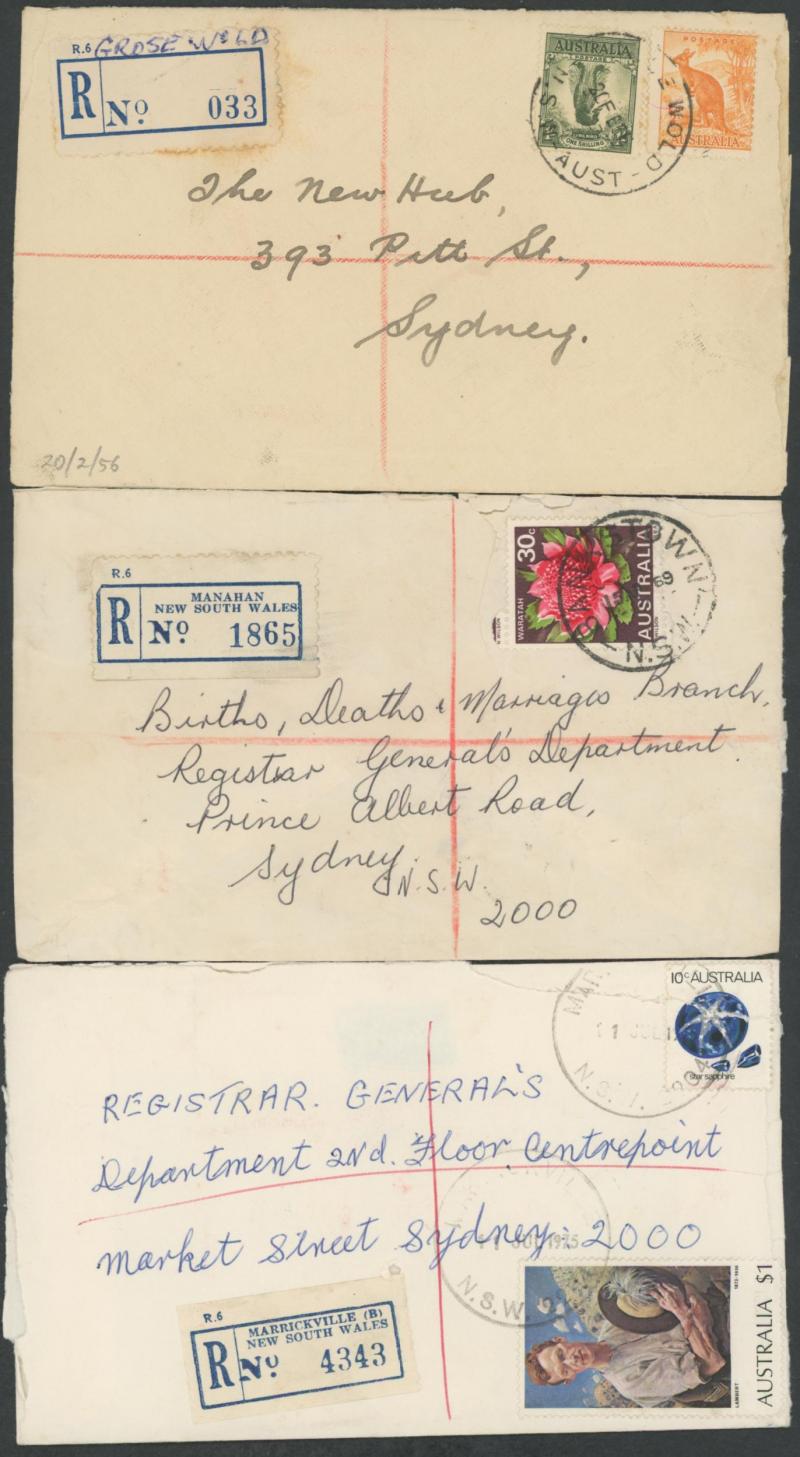 R.6 GROSE WOLD
R No 033
AUSTRALIA
POSTAGE
ONE SHILLING
POSTAGE
AUSTRALIA
E WOLD
N.S.W. AUST
The New Hub,
393 Pitt St.,
Sydney.
20/2/56
R.6
MANAHAN
NEW SOUTH WALES
R No 1865
30c
WARATAH
AUSTRALIA
TOWN
69
N.S.W.
Births, Deaths & Marriages Branch,
Registrar General's Department.
Prince Albert Road,
Sydney.
N.S.W.
2000
10c AUSTRALIA
star sapphire
11 JUL
REGISTRAR. GENERAL'S
Department 2nd. Floor Centrepoint
Market Street Sydney: 2000
11 JUL 1975
N.S.W.
R.6
MARRICKVILLE (B)
NEW SOUTH WALES
R No 4343
LAMBERT
1873-1930
AUSTRALIA $1